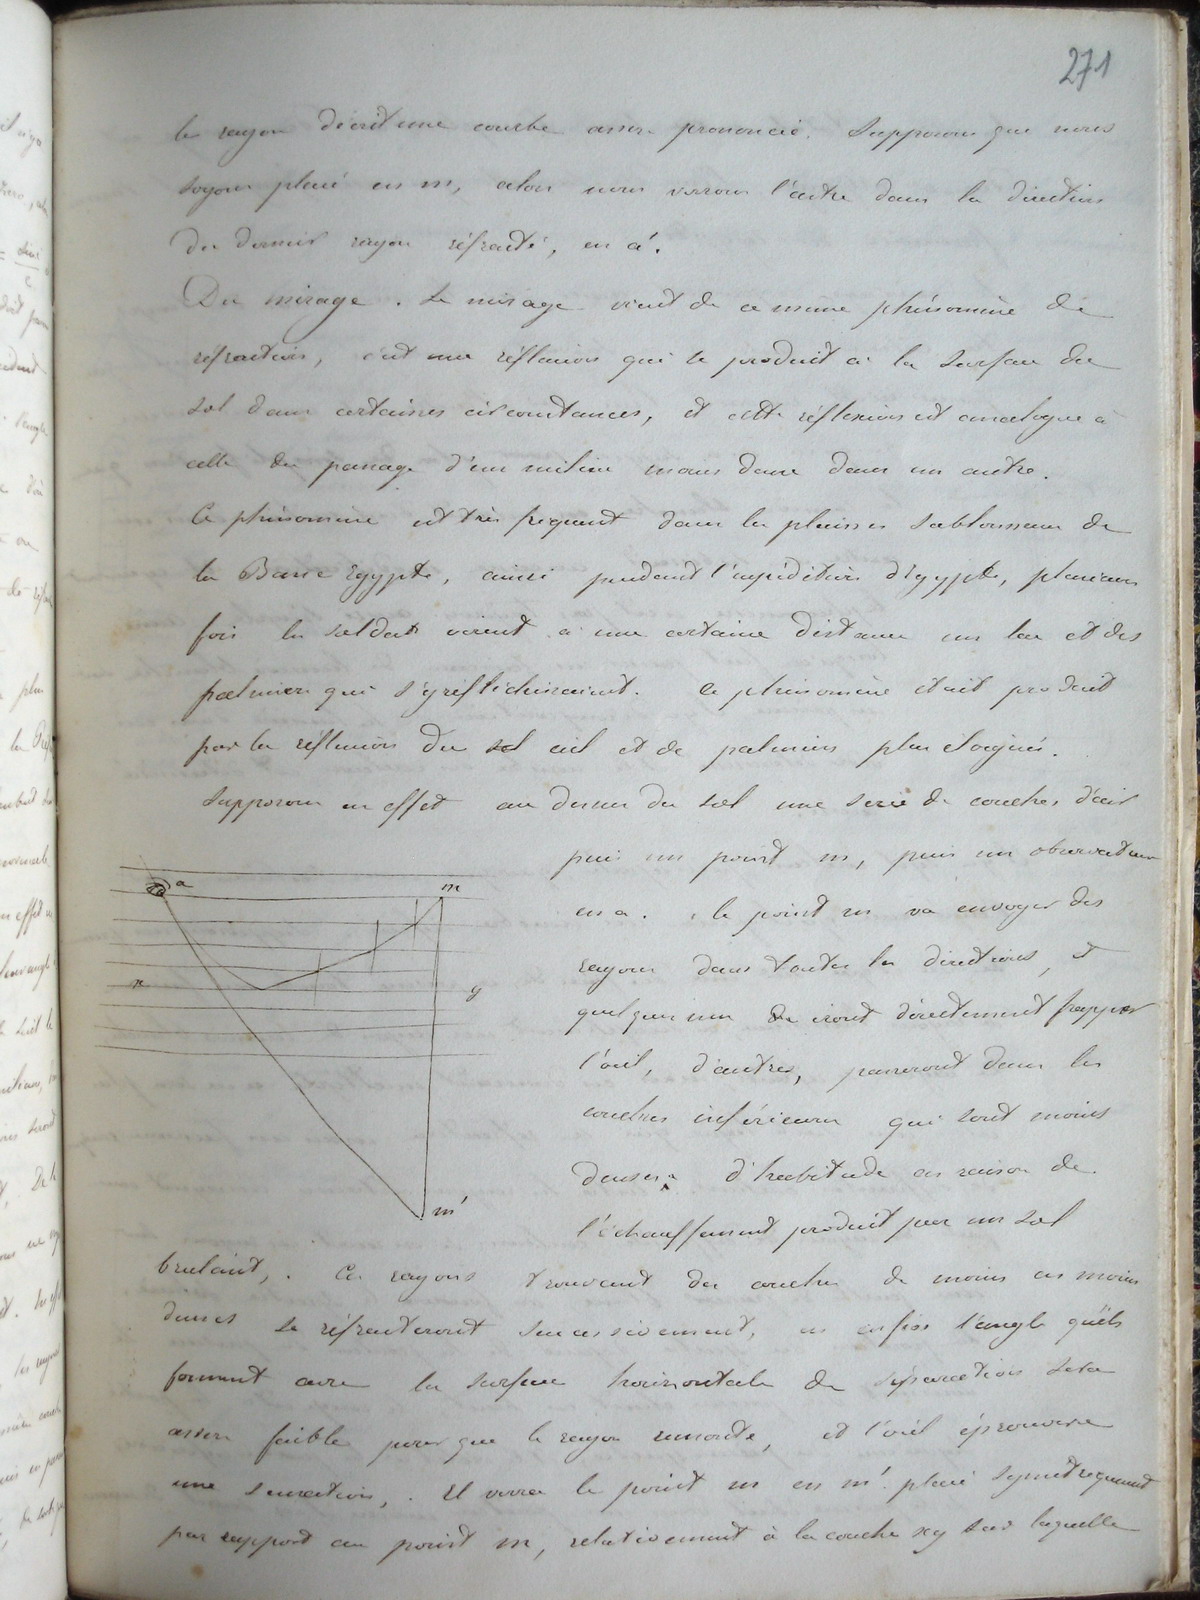 271
le rayon décrit une courbe assez prononcée. Supposons que nous
soyons placé en m, alors nous verrons l'astre dans la direction
du dernier rayon réfracté, en a'.
Du mirage. Le mirage vient de ce même phénomène de
réfraction, c'est une réflexion qui se produit à la surface du
sol dans certaines circonstances, et cette réflexion est analogue à
celle du passage d'un milieu moins dense dans un autre.
Ce phénomène est très frequent dans les plaines sablonneuses de
la Basse Egypte, ainsi pendant l'expédition d'Egypte, plusieurs
fois les soldats virent à une certaine distance un lac et des
palmiers qui s'y réfléchissaient. Ce phénomène était produit
par la réflexion du ciel et de palmiers plus éloignés.
Supposons en effet au dessus du sol une serie de couches d'air
puis un point m, puis un observateur
en a. le point m va envoyer des
rayons dans toutes les directions, et
quelques uns iront directement frapper
l'œil, d'autres, passeront dans les
couches inférieures qui sont moins
denses d'habitude en raison de
l'échauffement produit par un sol
brulant,. Ces rayons trouvant des couches de moins en moins
denses se réfracteront successivement, en enfin l'angle qu'ils
forment avec la surface horizontale de séparation sera
assez faible pour que le rayon remonte, et l'œil éprouvera
une sensation,. Il verra le point m en m' placé symétriquement
par rapport au point m, relativement à la couche xy sur laquelle
a
m
x
y
m'